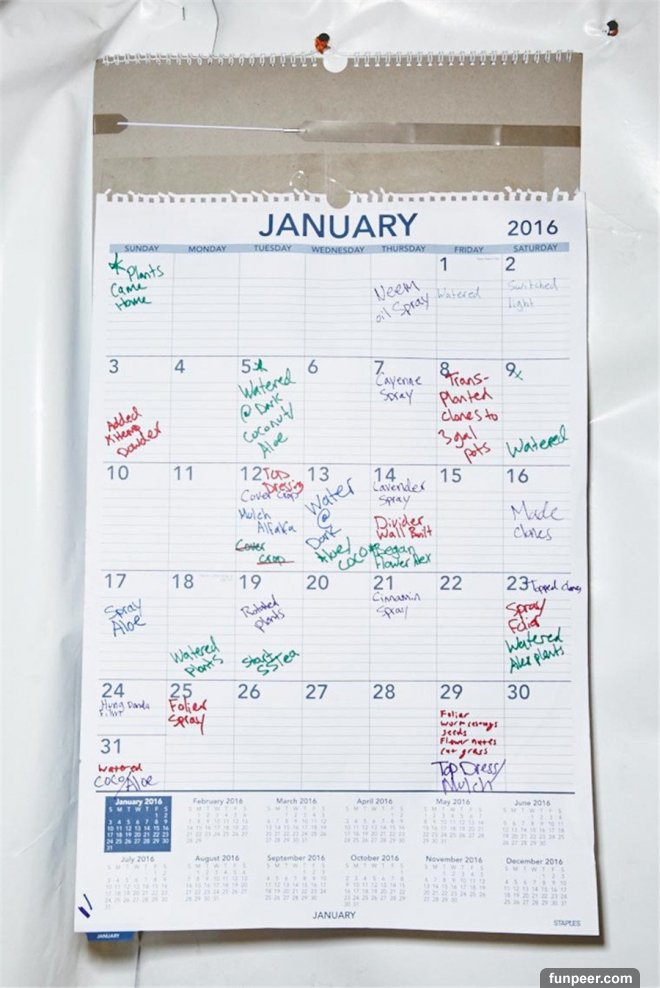 JANUARY 2016
SUNDAY MONDAY TUESDAY WEDNESDAY THURSDAY FRIDAY SATURDAY
Plants
Came
Home
Neem
oil Spray
1
Watered
2
Switched
light
3
Added
Powder
4
5
Watered
@ Dark
Coconut/
Aloe
6
7
Cayenne
Spray
8
Trans-
Planted
Clones to
3 gal
pots
9
Watered
10
11
12 Top
Dressing
Cover Crops
Mulch
Alfalfa
Cover
Crop
13
Water
@
Dark
Aloe/
Coco
14
Lavender
Spray
Divider
Wall Built
Began
Flower Alex
15
16
Made
Clones
17
Spray
Aloe
18
Watered
Plants
19
Rotated
plants
Start
SSTea
20
21
Cinnamin
Spray
22
23 Topped Clones
Spray
Folier
Watered
Alex plants
24
Hung Panda
Film
25
Folier
Spray
26
27
28
29
Folier
worm castings
seeds
Flower nates
cut grass
Top Dress/
Mulch
30
31
Watered
Coco/Aloe
January 2016
S M T W T F S
1 2
3 4 5 6 7 8 9
10 11 12 13 14 15 16
17 18 19 20 21 22 23
24 25 26 27 28 29 30
31
February 2016
March 2016
April 2016
May 2016
June 2016
July 2016
August 2016
September 2016
October 2016
November 2016
December 2016
JANUARY
STAPLES
JANUARY
funpeer.com